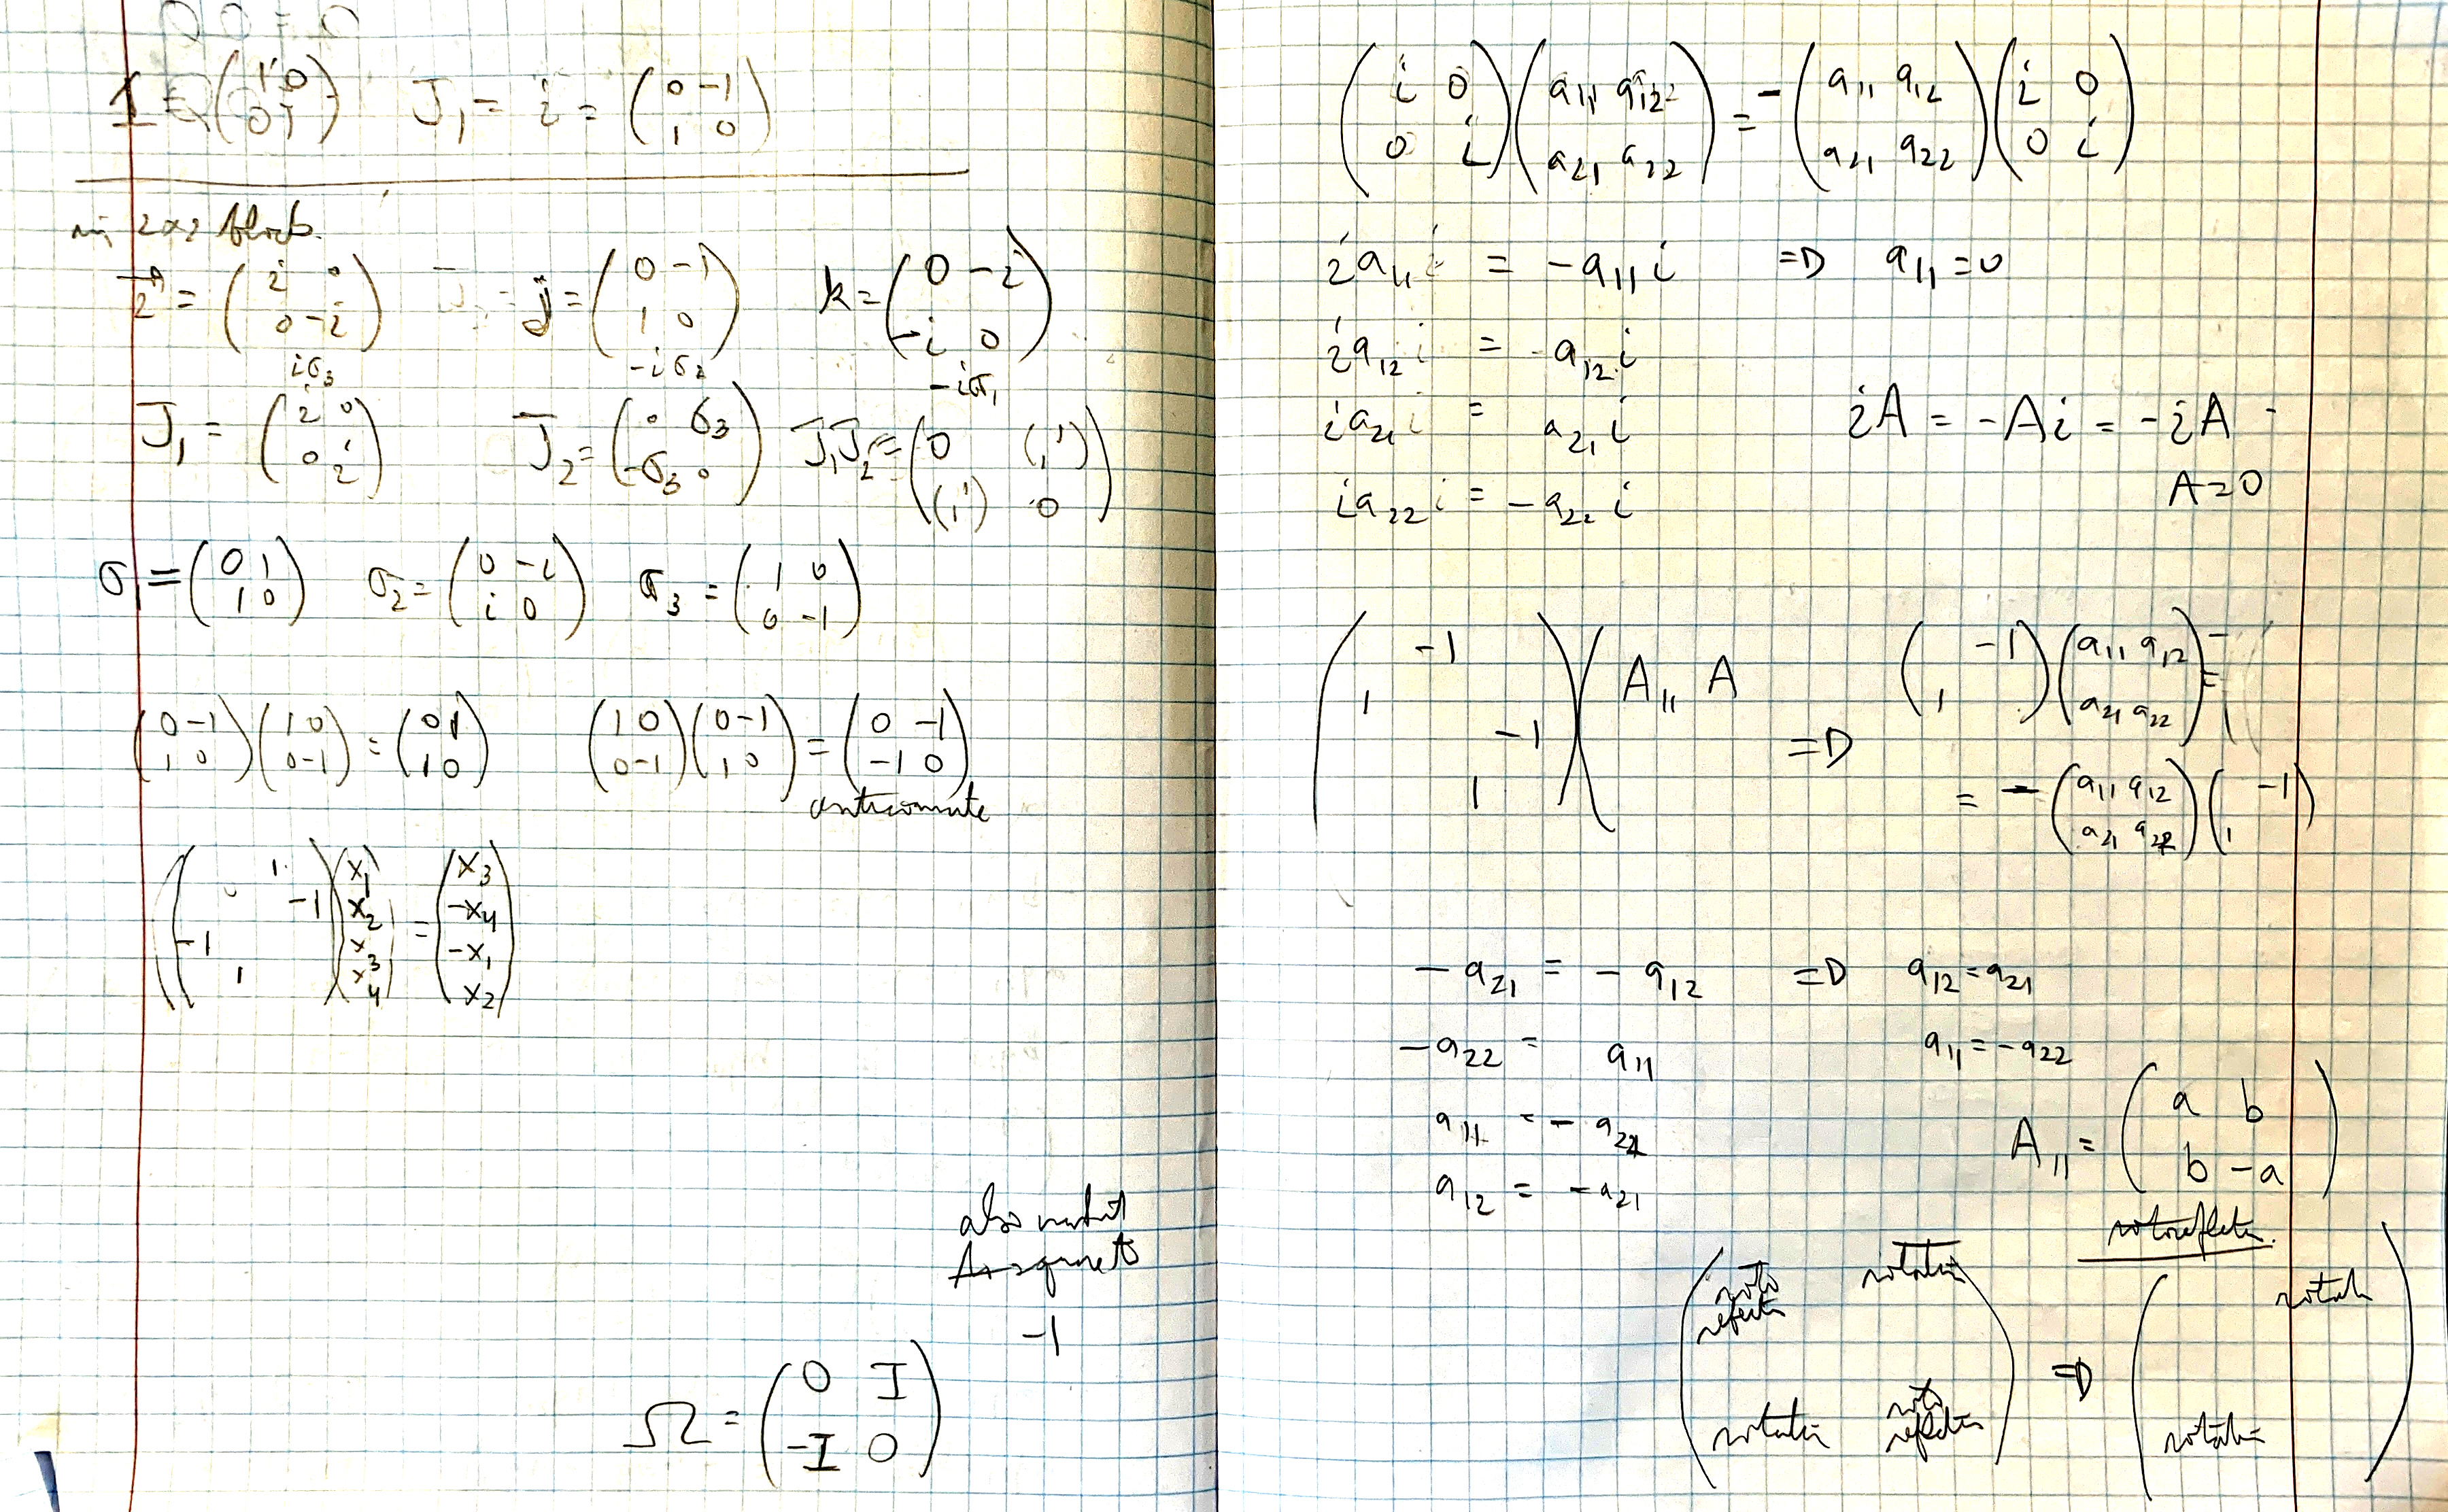 1 = (1 0 / 0 1)   J₁ = i = (0 -1 / 1 0)
in 2x2 blocks.
i = (i 0 / 0 -i)   j = (0 -1 / 1 0)   k = (0 -i / -i 0)
iσ₃   -iσ₂   -iσ₁
J₁ = (i 0 / 0 i)   J₂ = (0 σ₃ / -σ₃ 0)   J₁J₂ = (0 (1 / 1) / (1 / 1) 0)
σ₁ = (0 1 / 1 0)   σ₂ = (0 -i / i 0)   σ₃ = (1 0 / 0 -1)
(0 -1 / 1 0)(1 0 / 0 -1) = (0 1 / 1 0)   (1 0 / 0 -1)(0 -1 / 1 0) = (0 -1 / -1 0)
anticommute
(1 / -1 / -1 / 1)(x₁ / x₂ / x₃ / x₄) = (x₃ / -x₄ / -x₁ / x₂)
also
-1
Ω = (0 I / -I 0)
(i 0 / 0 i)(a₁₁ a₁₂ / a₂₁ a₂₂) = -(a₁₁ a₁₂ / a₂₁ a₂₂)(i 0 / 0 i)
i a₁₁ i = -a₁₁ i   => a₁₁ = 0
i a₁₂ i = -a₁₂ i
i a₂₁ i = a₂₁ i
iA = -Ai = -iA
A = 0
i a₂₂ i = -a₂₂ i
(-1 / 1 / -1 / 1)(A₁₁ A   =>   (-1 / 1)(a₁₁ a₁₂ / a₂₁ a₂₂) =
= -(a₁₁ a₁₂ / a₂₁ a₂₂)(-1 / 1)
-a₂₁ = -a₁₂   => a₁₂ = a₂₁
-a₂₂ = a₁₁   a₁₁ = -a₂₂
a₁₁ = -a₂₂
A₁₁ = (a b / b -a)
a₁₂ = -a₂₁
rotoreflection.
(roto reflection rotation / rotation roto reflection) => (rotation / rotation)